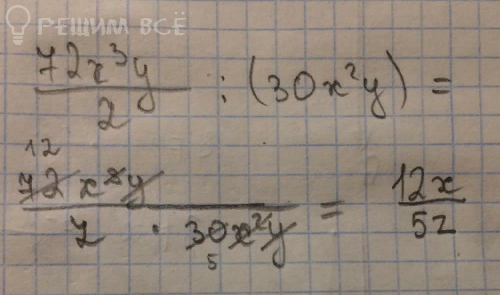 РЕШИМ ВСЁ
72x³y / 2 : (30x²y) =
12
72x³y / z · 30x²y = 12x / 5z
5